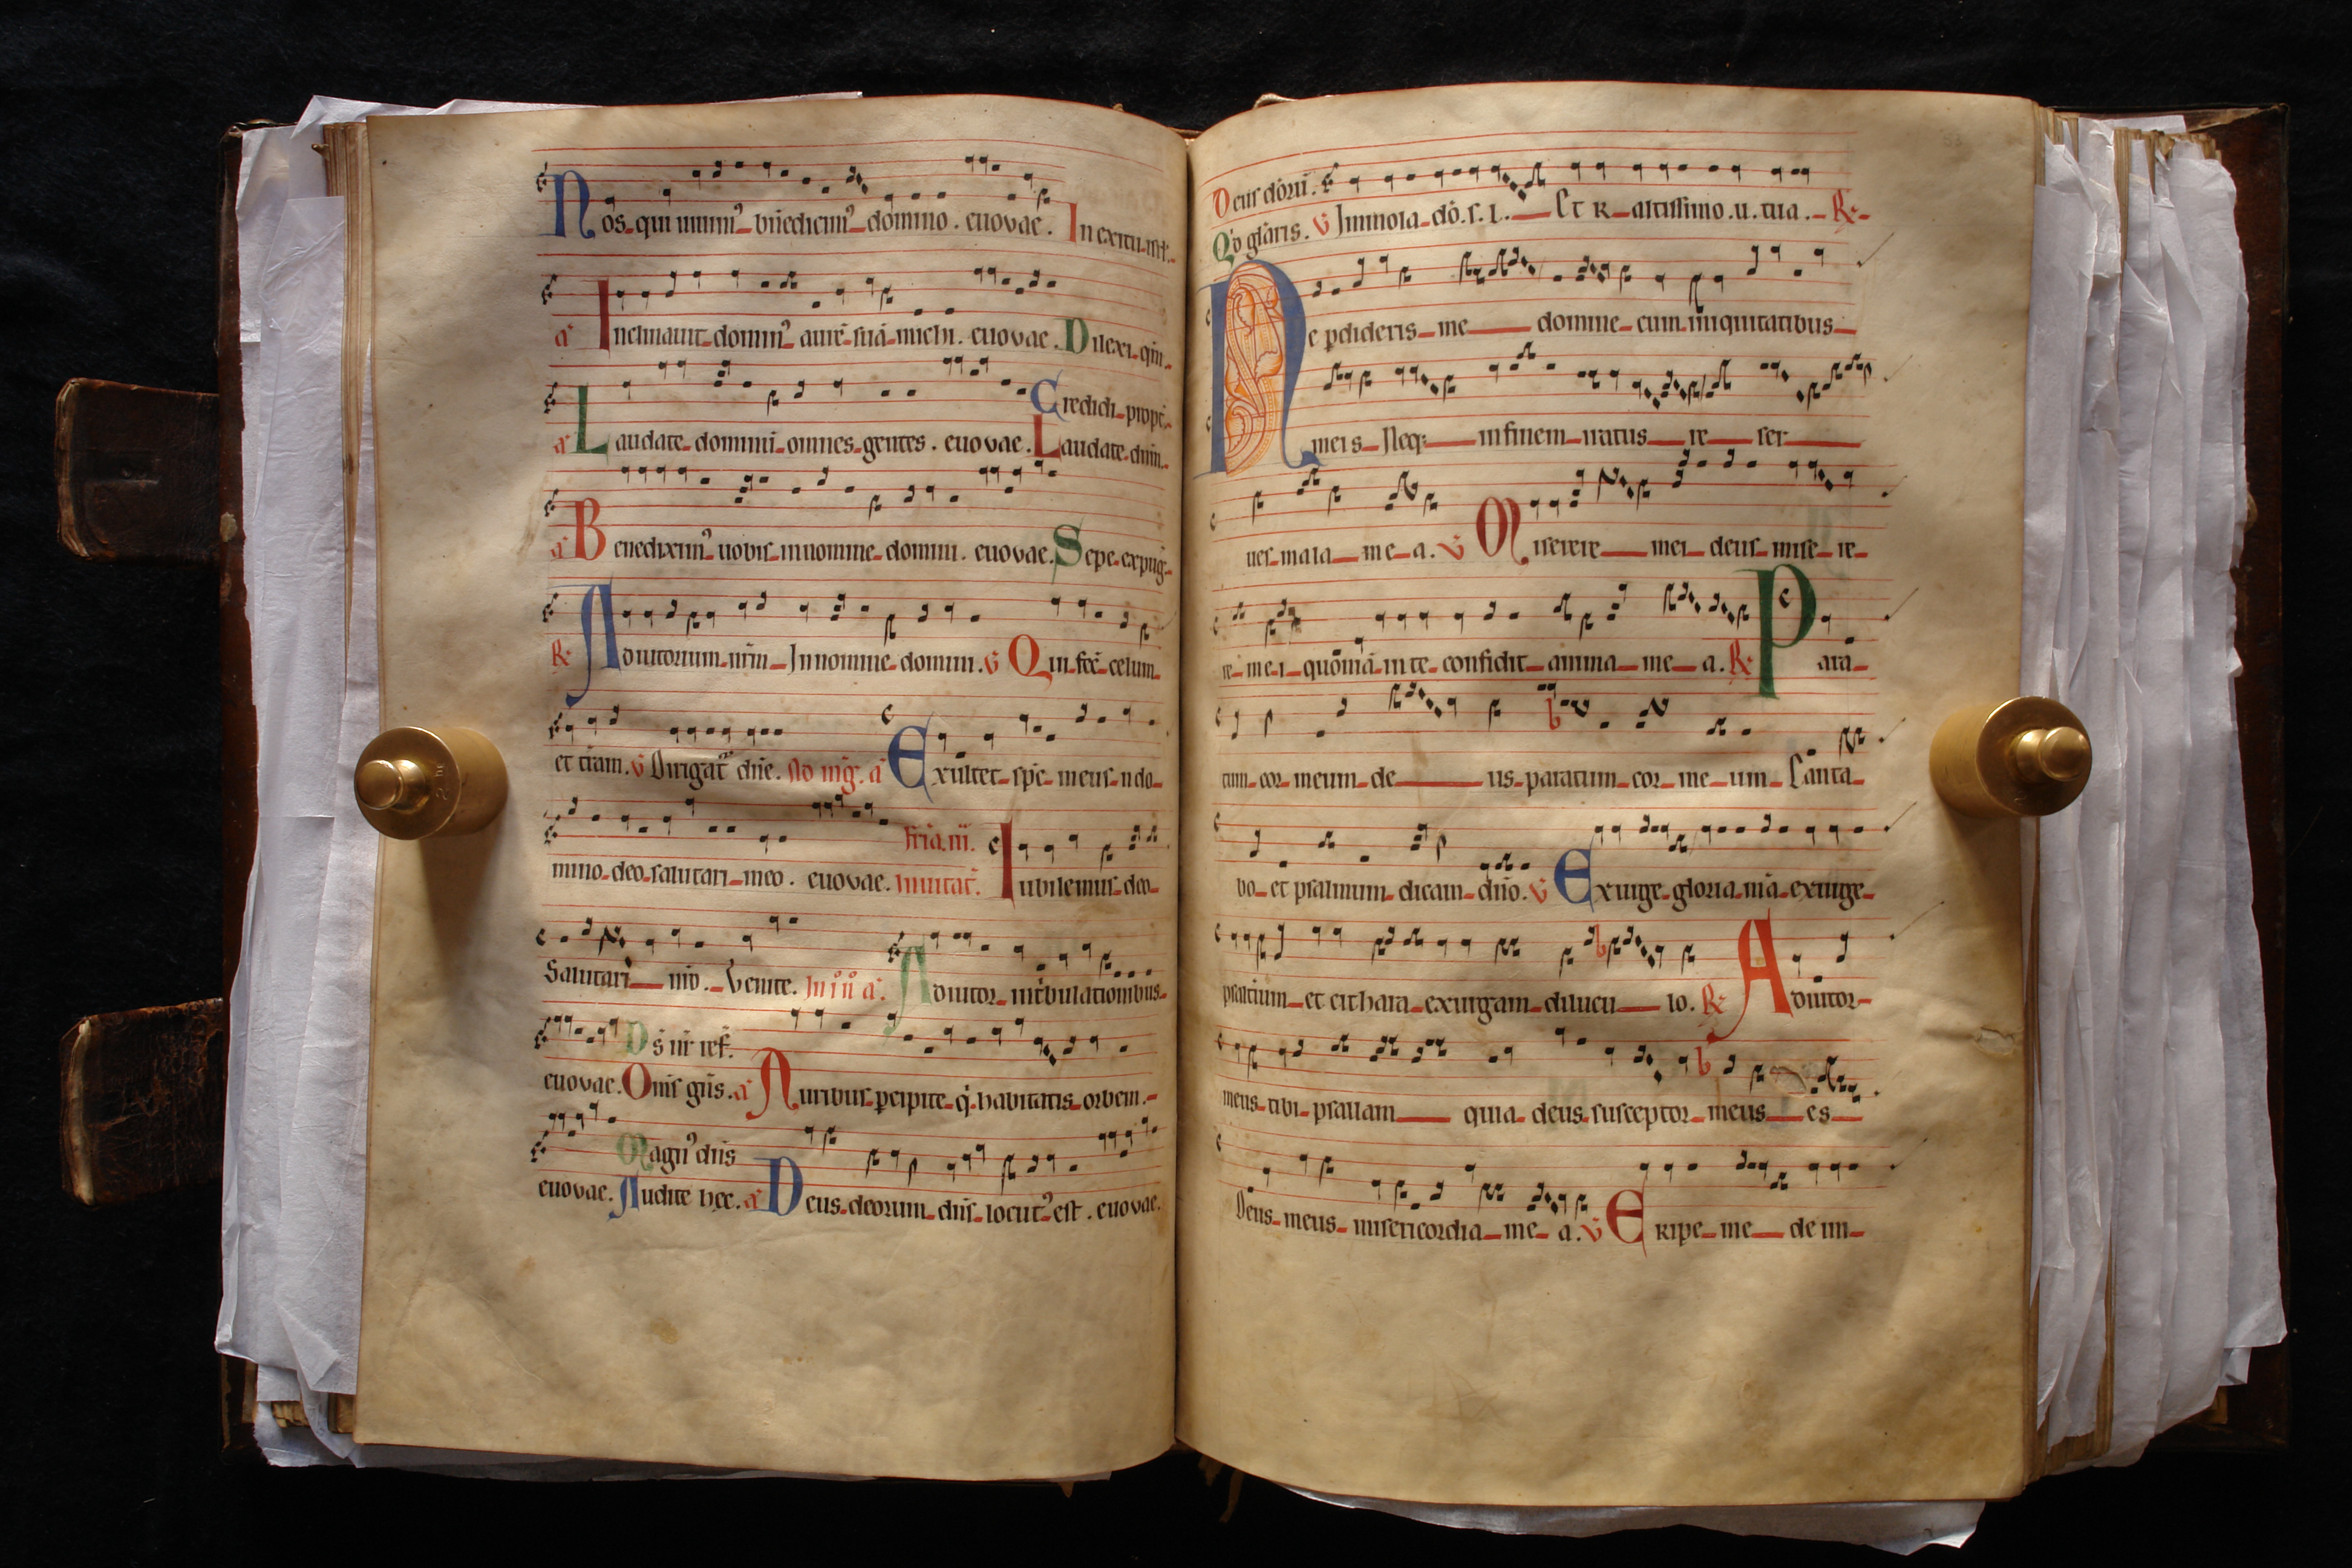 Nos qui uiuim᾽ bn̄edicim᾽ domino. euouae. In exitu isrl̄.
a᾽ Inclinauit domin᾽ aurē suā michi. euouae. Dilexi qm̄.
Credidi propt̄.
a᾽ Laudate dominū omnes gentes. euouae. Laudate dnm̄.
a᾽ Benedixim᾽ uobis in nomine domini. euouae. Sepe expuḡ
R᾽ Adiutorium nr̄m In nomine domini. V Qui fec̄ celum
et tr̄am. V Dirigat᾽ dn̄e. Ad mag̃. a᾽ Exultet sp̄c meus in do
mino deo salutari meo. euouae. fr̄ia. iii. Inuitat̄. Iubilemus deo
Salutari nr̄o. Venite. In iͦ nͦ a᾽. Adiutor in tͥbulationibus
Ds̄ nr̄ ref.
euouae. Om̄s gn̄s. a᾽ Auribus ꝑcipite qͥ habitatis orbem.
Magn᾽ dn̄s
euouae. Audite hec. a᾽ Deus deorum dn̄s locut᾽ est. euouae.
Deus dōrū.
Qͥd gl̄aris. V Immola dō. s. l. Et R altissimo. u. tua. R᾽
Ne ꝑdideris me domine cum iniquitatibus
meis Neqꝫ in finem iratus re ser
ues mala me a. V Miserere mei deus mise re
re mei quoniā in te confidit anima me a. R᾽ Para
tum cor meum de us paratum cor me um Canta
bo et psalmum dicam dn̄o. V Exurge gloria mā exurge
psaltium et cithara exurgam dilucu lo. R᾽ Adiutor
meus tibi psallam quia deus susceptor meus es
Deus meus misericordia me a. V Eripe me de ini